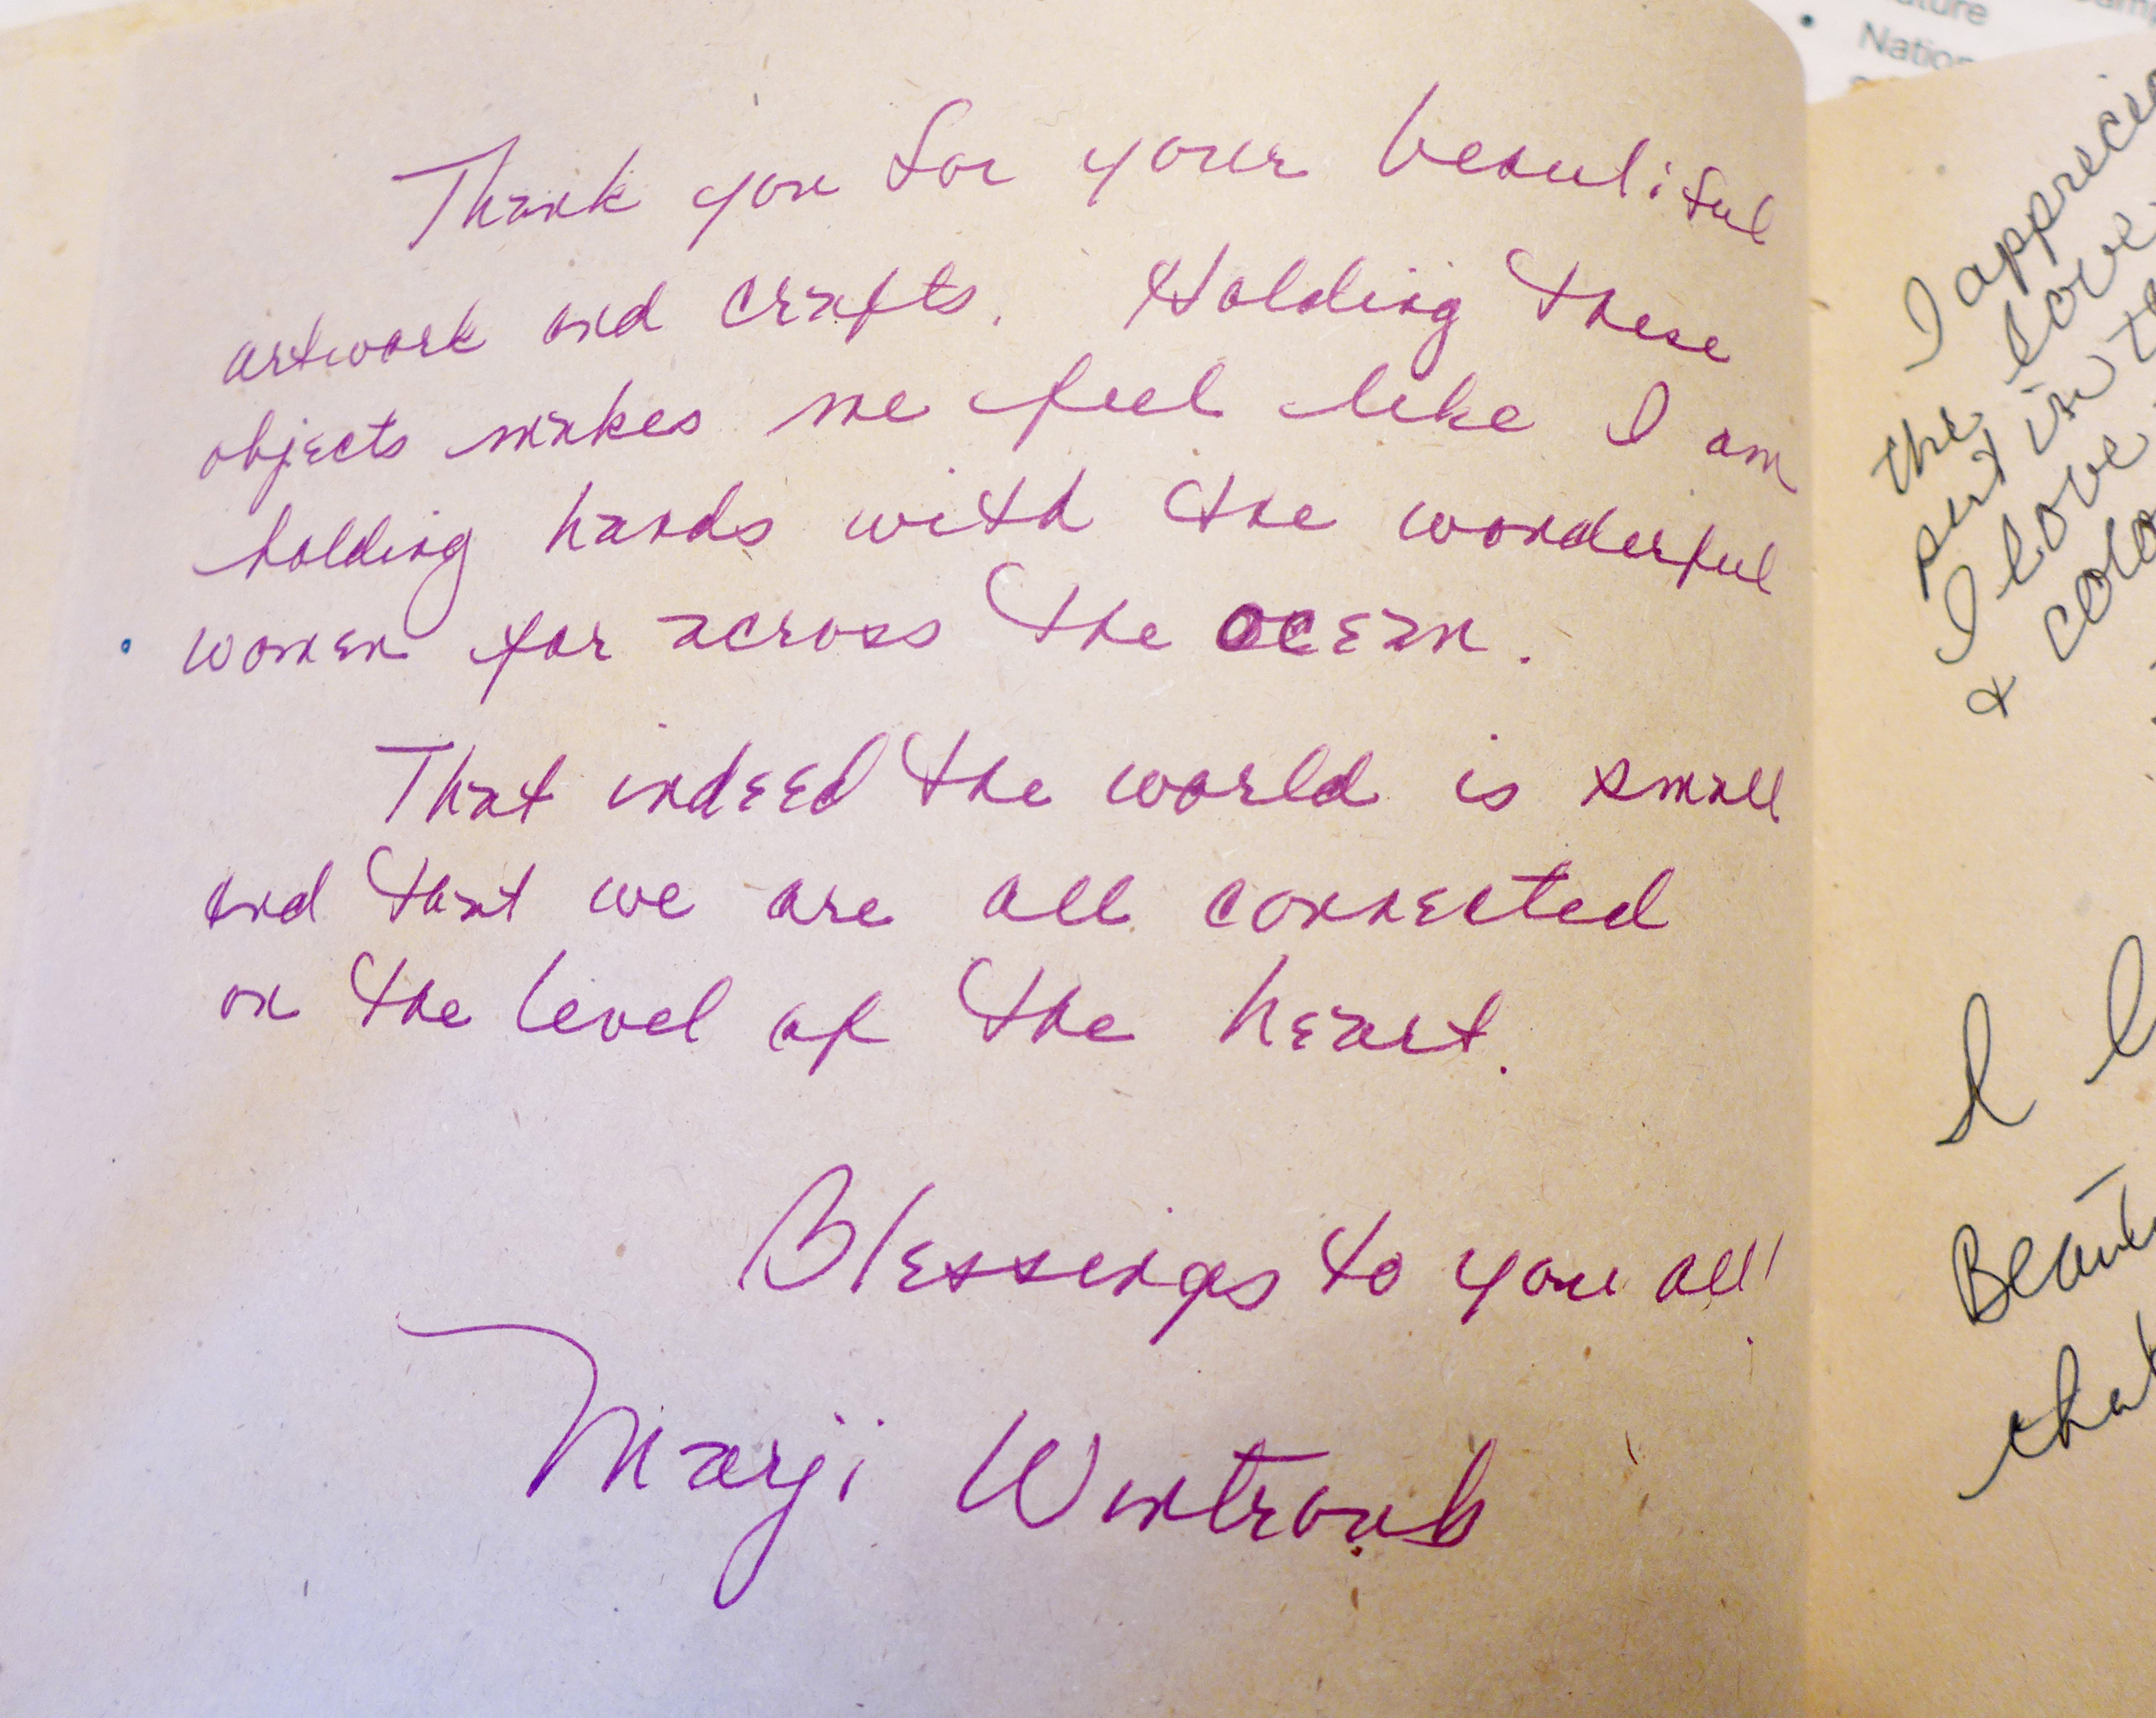 Thank you for your beautiful
artwork and crafts. Holding these
objects makes me feel like I am
holding hands with the wonderful
women far across the ocean.
That indeed the world is small
and that we are all connected
on the level of the heart.
Blessings to you all!
Marji Wintroub
Nation
I apprecia
the love
put in
I love
& colo
I l
Beauti